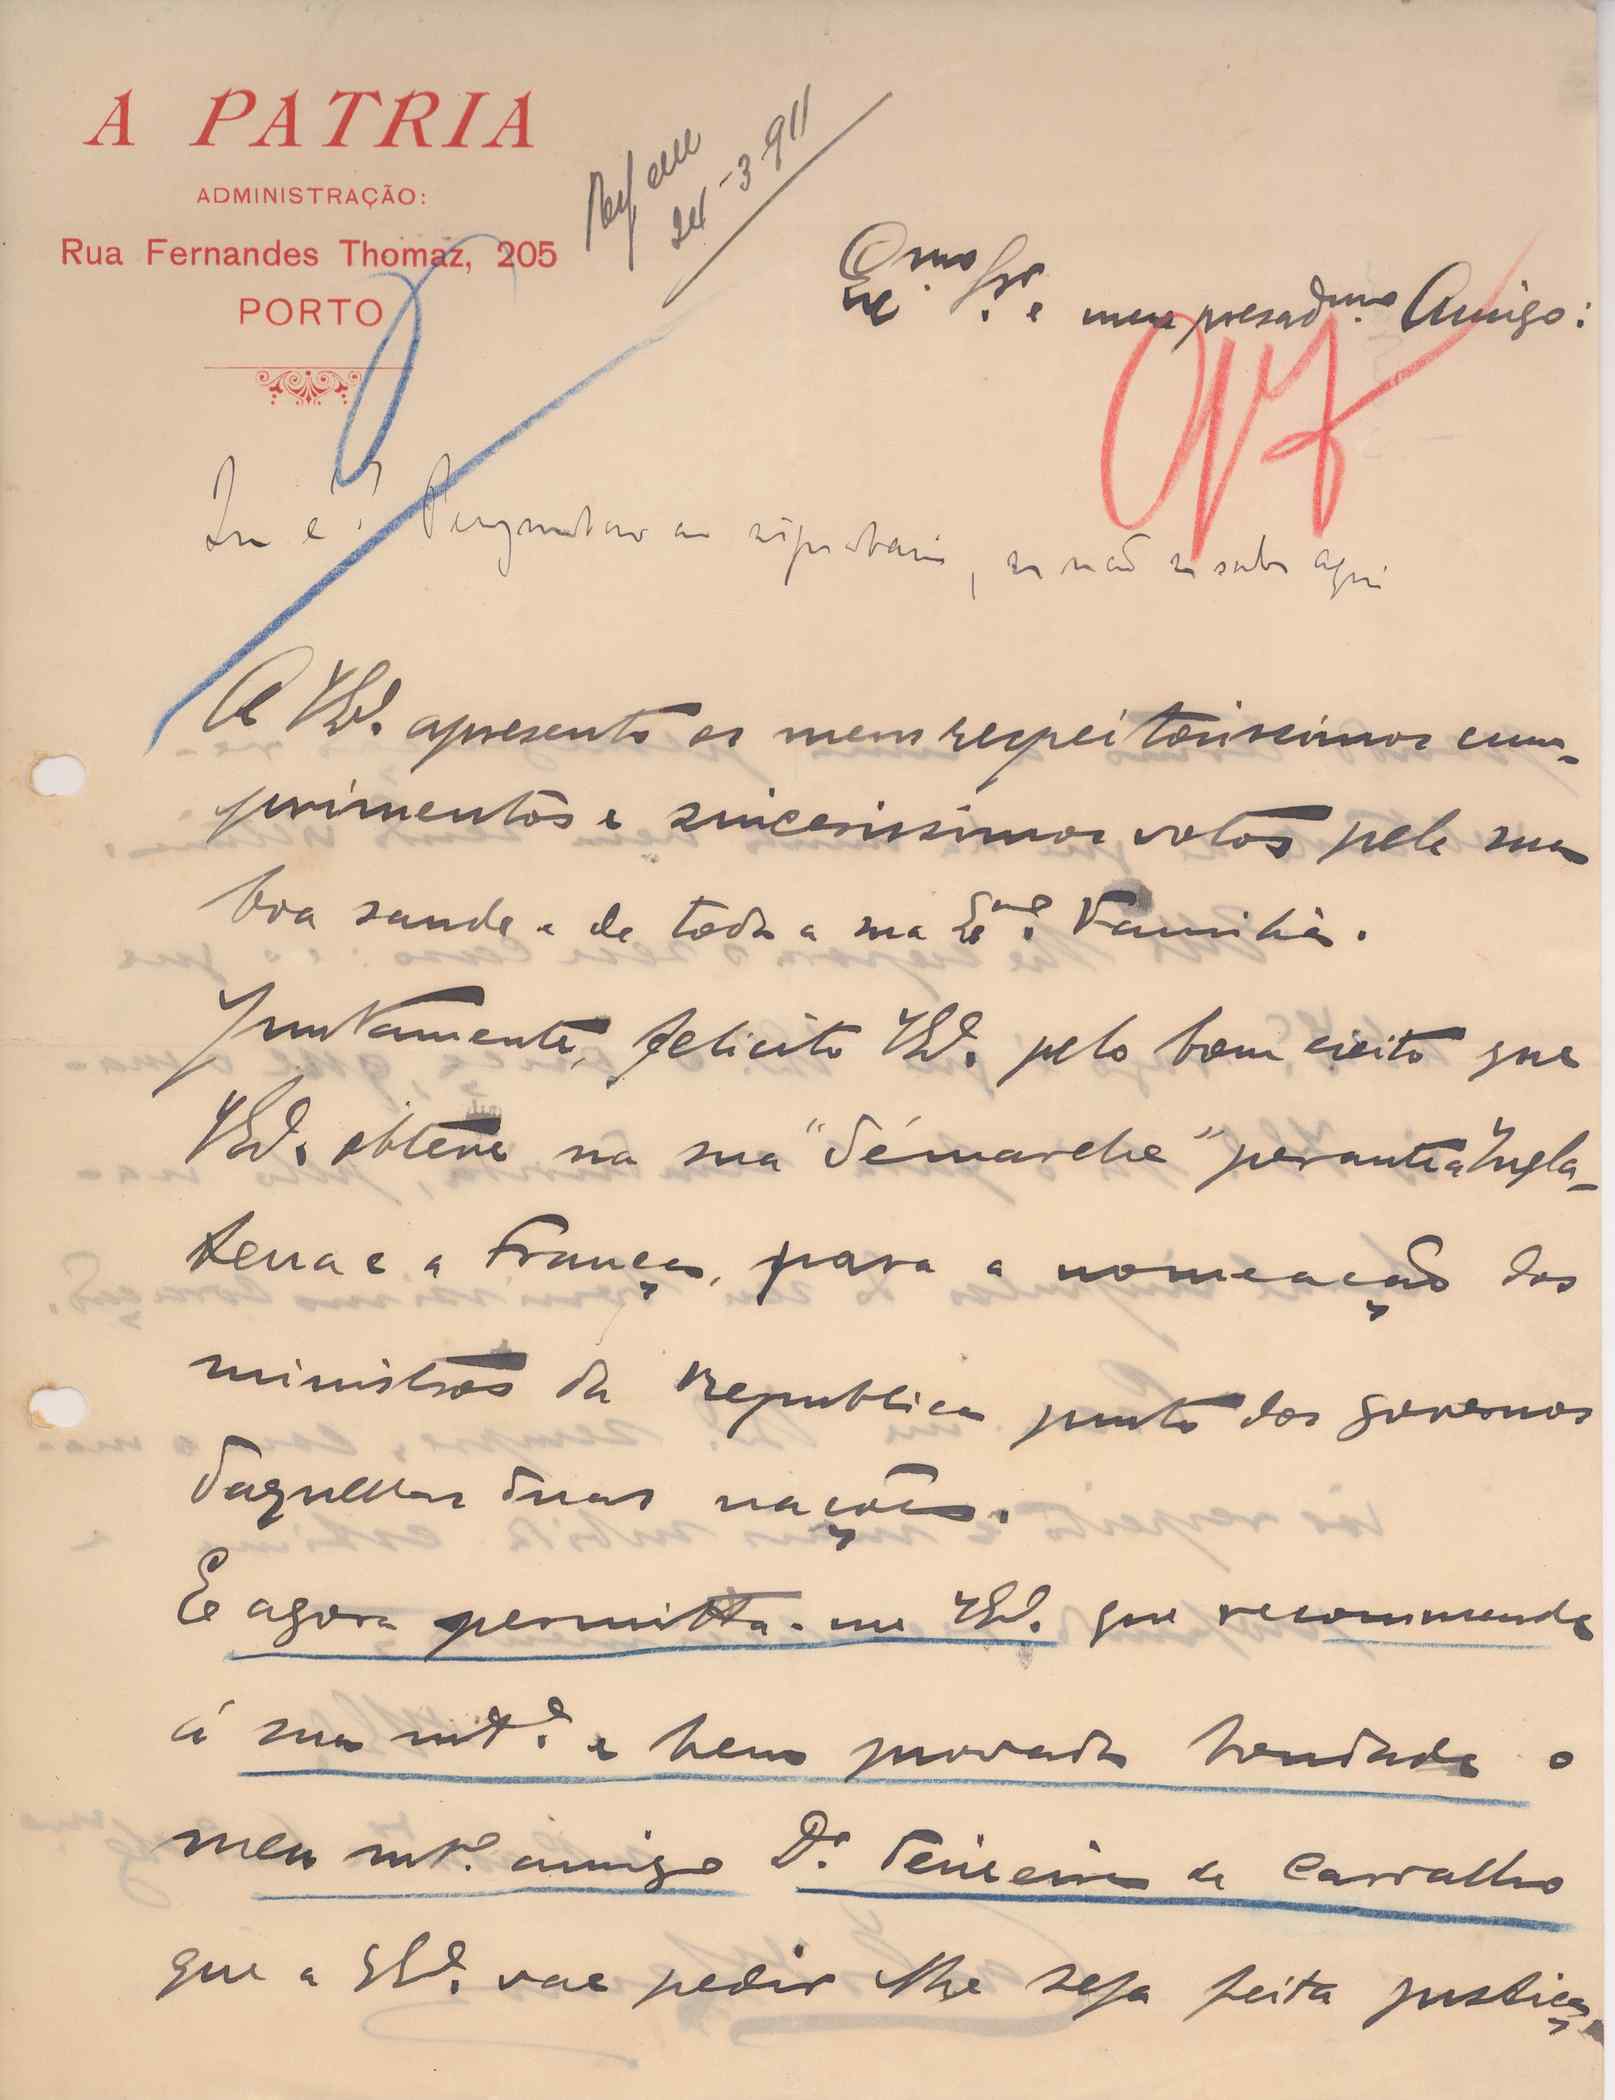 A PATRIA
ADMINISTRAÇÃO:
Rua Fernandes Thomaz, 205
PORTO
24-3-911
Exmo. Sr. e meu presadmo. Amigo:
se não se sabe aqui
A V. Ex.ª apresento os meus respeitosissimos cum-
primentos e sincerissimos votos pela sua
boa saude e de toda a sua Exma. Familia.
Juntamente, felicito V. Ex.ª pelo bom exito que
V. Ex.ª obteve na sua "démarche" perante a Ingla-
terra e a França, para a nomeação dos
ministros da Republica junto dos governos
daquellas duas nações.
E agora permitta-me V. Ex.ª que recommende
á sua mt.ª e bem provada bondade o
meu mt.º amigo Dr. Teixeira de Carvalho
que a V. Ex.ª vae pedir lhe seja feita justiça,